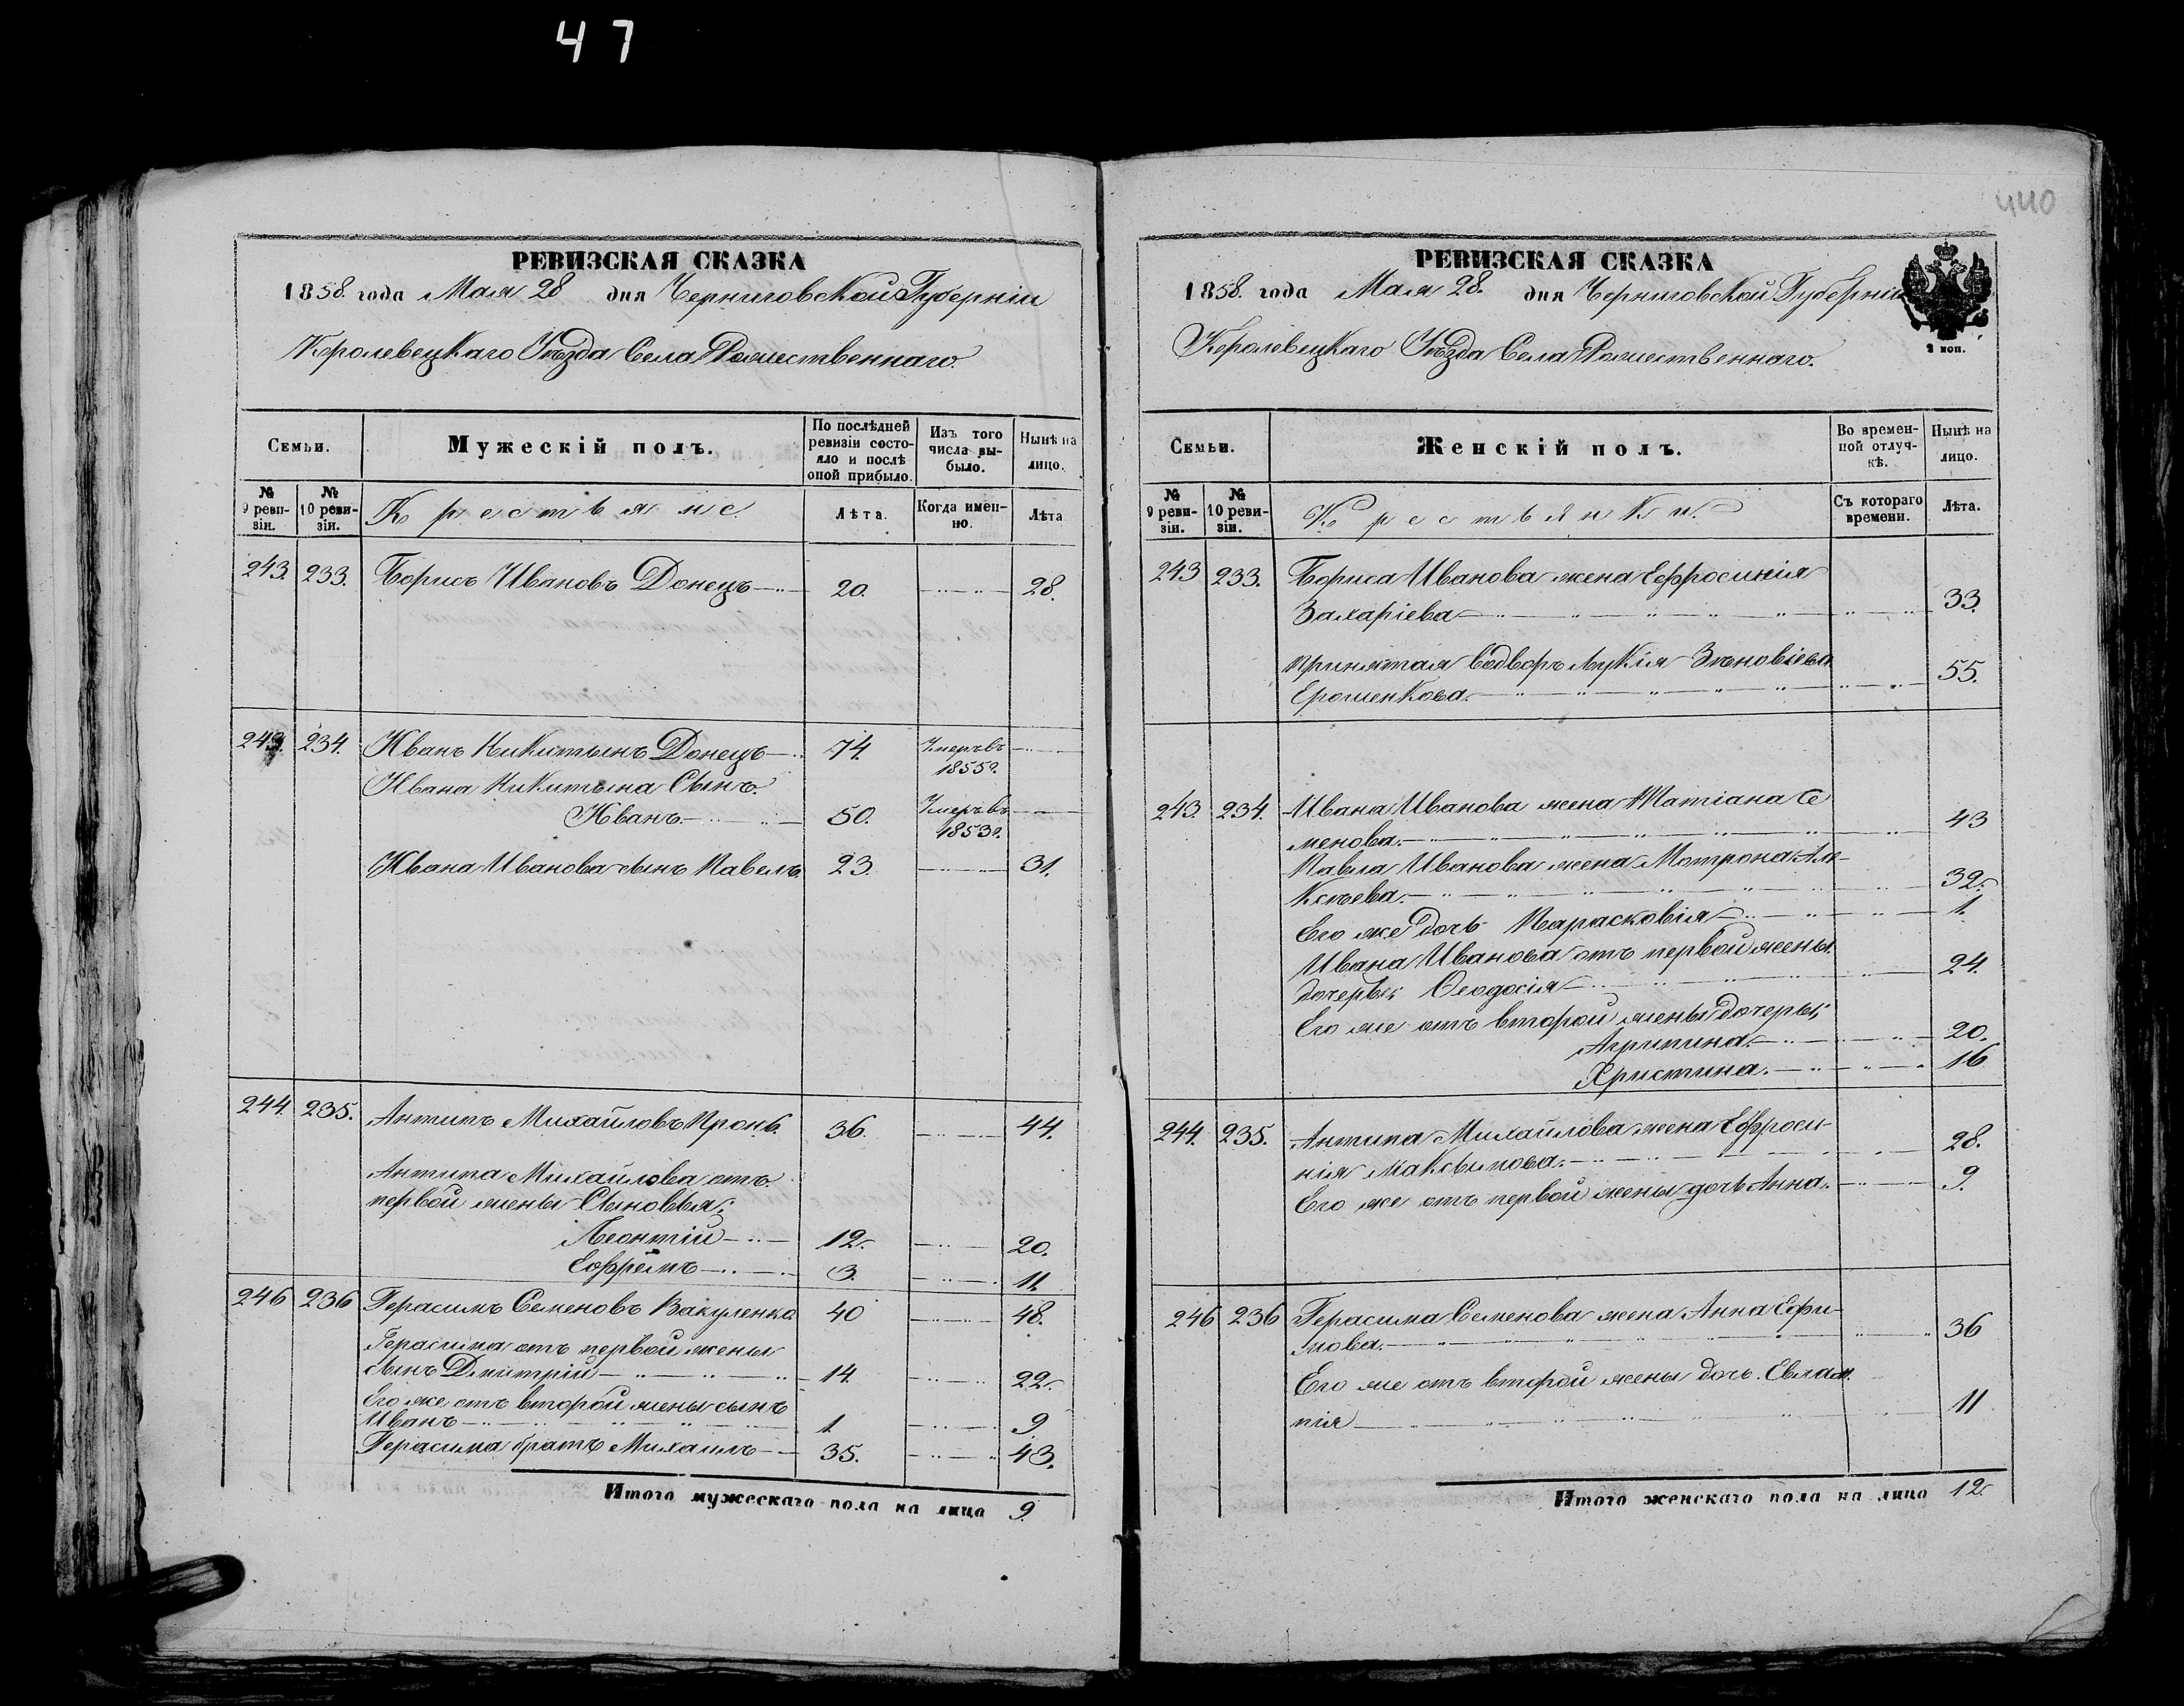 47
440
РЕВИЗСКАЯ СКАЗКА
1858. года Мая 28 дня Черниговской Губерніи
Кролевецкаго Уѣзда Села Рожественнаго.
Семьи. Мужескій полъ. По послѣдней ревизіи состояло и послѣ оной прибыло. Изъ того числа выбыло. Нынѣ на лицо.
№ 9 ревизіи. № 10 ревизіи. Крестьяне. Лѣта. Когда именно. Лѣта
243. 233. Борисъ Ивановъ Донецъ 20. 28.
243. 234. Иванъ Никитынъ Донецъ 74. Умеръ въ 1855г.
Ивана Никитына Сынъ
Иванъ 50. Умеръ въ 1853г.
Ивана Иванова сынъ Павелъ 23. 31.
244. 235. Антипъ Михайловъ Пронь. 36. 44.
Антипа Михайлова отъ
первой жены Сыновья:
Леонтій 12. 20.
Ефремъ 3. 11.
246 236 Герасимъ Семеновъ Вакуленко 40 48.
Герасима отъ первой жены
сынъ Дмитрій 14. 22.
Его же отъ второй жены сынъ
Иванъ 1. 9
Герасима братъ Михаилъ 35. 43.
Итого мужескаго пола на лицо 9.
РЕВИЗСКАЯ СКАЗКА
1858. года Мая 28. дня Черниговской Губерніи
2 коп.
Кролевецкаго Уѣзда Села Рожественнаго.
Семьи. Женскій полъ. Во временной отлучкѣ. Нынѣ на лицо.
№ 9 ревизіи. № 10 ревизіи. Крестьянки. Съ котораго времени. Лѣта.
243 233. Бориса Иванова жена Ефросинія
Захаріева 33.
принятая во дворъ Лукія Зѣновіева
Ерошенкова 55.
243. 234. Ивана Иванова жена Татіана Се
менова 43
Павла Иванова жена Мотрона Але-
ксѣева 32.
Его же дочь Парасковія 1.
Ивана Иванова отъ первой жены
дочерьи Ѳеодосія 24.
Его же отъ второй жены дочеры;
Агрипина 20.
Христина. 16
244. 235. Антипа Михайлова жена Ефроси-
нія Максымова. 28.
Его же отъ первой жены дочь Анна. 9.
246 236 Герасима Семенова жена Анна Ефи-
мова. 36
Его же отъ второй жены дочь. Евлам.
пія 11
Итого женскаго пола на лицо 12.